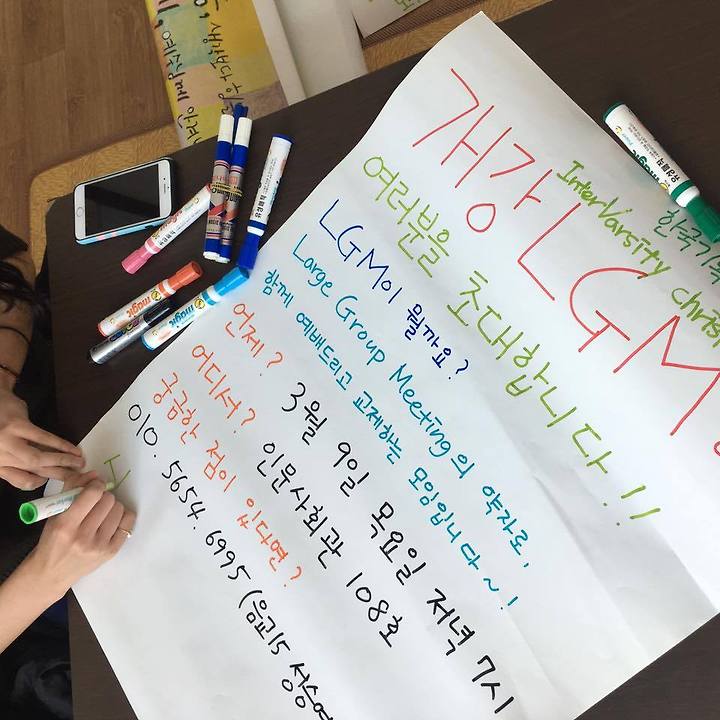 개강 LGM
InterVarsity Christ
한국기독
여러분을 초대합니다!!
LGM이 뭘까요?
Large Group Meeting의 약자로,
함께 예배드리고 교제하는 모임입니다~!
언제? 3월 9일 목요일 저녁 7시
어디서? 인문사회관 108호
궁금한 점이 있다면?
010. 5654. 6995 (음교15 성승연
magic
magic
유성매직